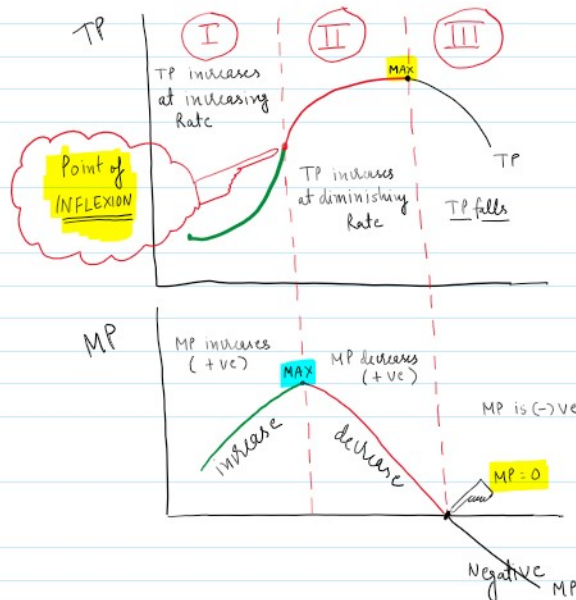 TP
I
II
III
TP increases
at increasing
Rate
MAX
Point of
INFLEXION
TP increases
at diminishing
Rate
TP
TP falls
MP
MP increases
(+ve)
MAX
MP decreases
(+ve)
MP is (-)ve
increase
decrease
MP = 0
Negative
MP